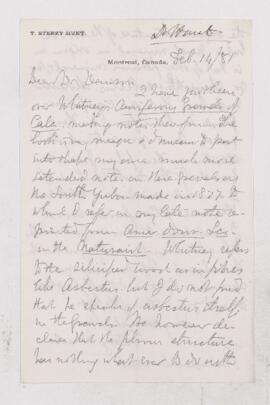 T. STERRY HUNT.
Dr Hunt
Montreal, Canada, Feb. 14/81
Dear Dr.
I have just been
over Whitney's Auriferous Gravels of
Cala. making notes there from. The
book is very meagre & I mean to put
into shape my own much more
extended notes on these gravels on
the South Yuba made in 1877 to
which I refer in my late note re-
printed from Amer Jour. Sci.
in the Naturalist. Whitney refers
to the silicified wood as in places
like Asbestus. but I do not find
that he speaks of asbestus itself
in the gravels. He however de-
clares that the fibrous structure
has nothing what ever to do with